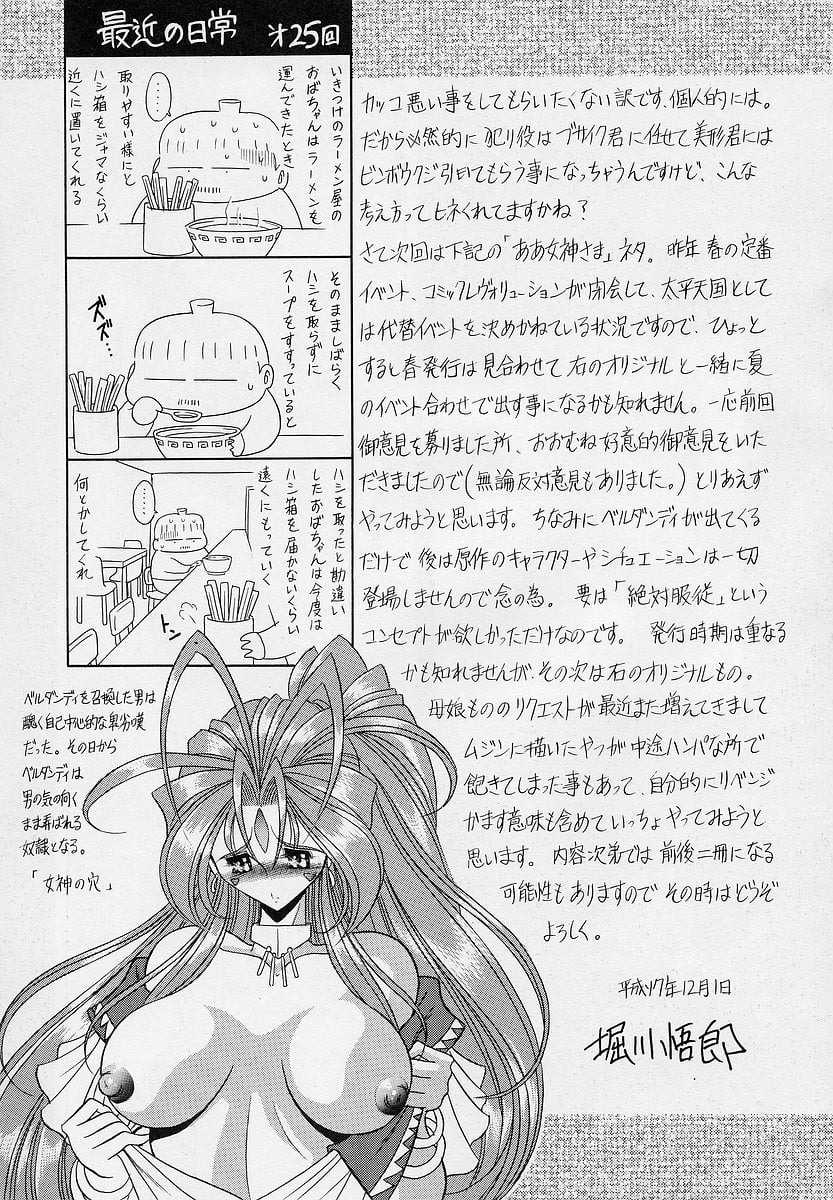 最近の日常 オ25回
いきつけのラーメン屋の
おばちゃんはラーメンを
運んできたとき
‥‥‥
取りやすい様にと
ハシ箱をジャマなくらい
近くに置いてくれる
そのまましばらく
ハシを取らずに
スープをすすっていると
ズズ‥
ハシを取ったと勘違い
したおばちゃんは今度は
ハシ箱を届かないくらい
遠くにもっていく
‥‥‥
何とかしてくれ
トン
カッコ悪い事をしてもらいたくない訳です、個人的には。
だから必然的に犯り役はブサイク君に任せて美形君には
ビンボウクジ引いてもらう事になっちゃうんですけど、こんな
考え方ってヒネくれてますかね?
さて次回は下記の「ああ女神さま」ネタ。昨年春の定番
イベント、コミックレヴォリューションが閉会して、太平天国として
は代替イベントを決めかねている状況ですので、ひょっと
すると春発行は見合わせて右のオリジナルと一緒に夏
のイベント合わせで出す事になるかも知れません。一応前回
御意見を募りました所、おおむね好意的御意見をいた
だきましたので(無論反対意見もありました。)とりあえず
やってみようと思います。ちなみにベルダンディが出てくる
だけで後は原作のキャラクターやシチュエーションは一切
登場しませんので念の為。要は「絶対服従」という
コンセプトが欲しかっただけなのです。発行時期は重なる
かも知れませんが、その次は右のオリジナルもの。
母娘もののリクエストが最近また増えてきまして
ムジンに描いたやつが中途ハンパな所で
飽きてしまった事もあって、自分的にリベンジ
かます意味も含めていっちょやってみようと
思います。内容次第では前後二冊になる
可能性もありますのでその時はどうぞ
よろしく。
平成17年12月1日
堀川悟郎
ベルダンディを召喚した男は
醜く自己中心的な卑劣漢
だった。その日から
ベルダンディは
男の気の向く
まま弄ばれる
奴隷となる。
「女神の穴」